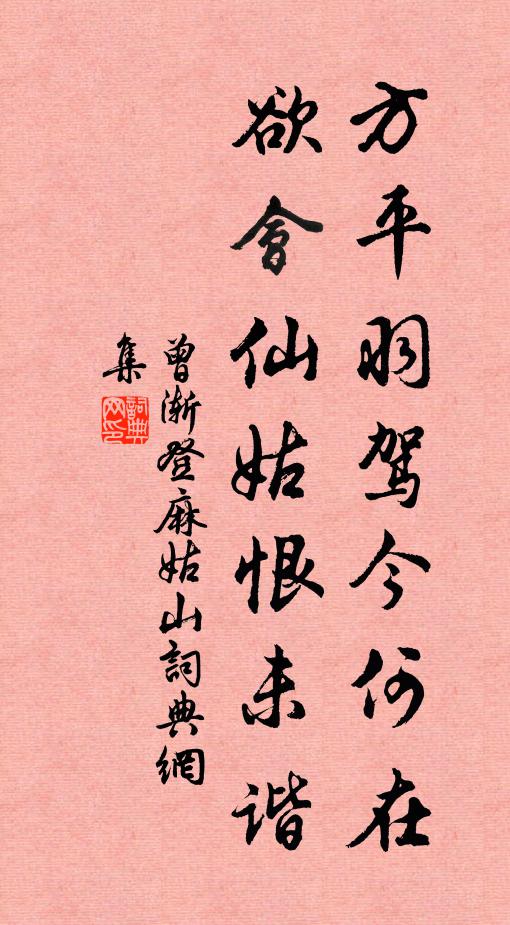 方平羽驾今何在
欲會仙姑恨未谐
曾渐登麻姑山詞典網
集
詞典
网印